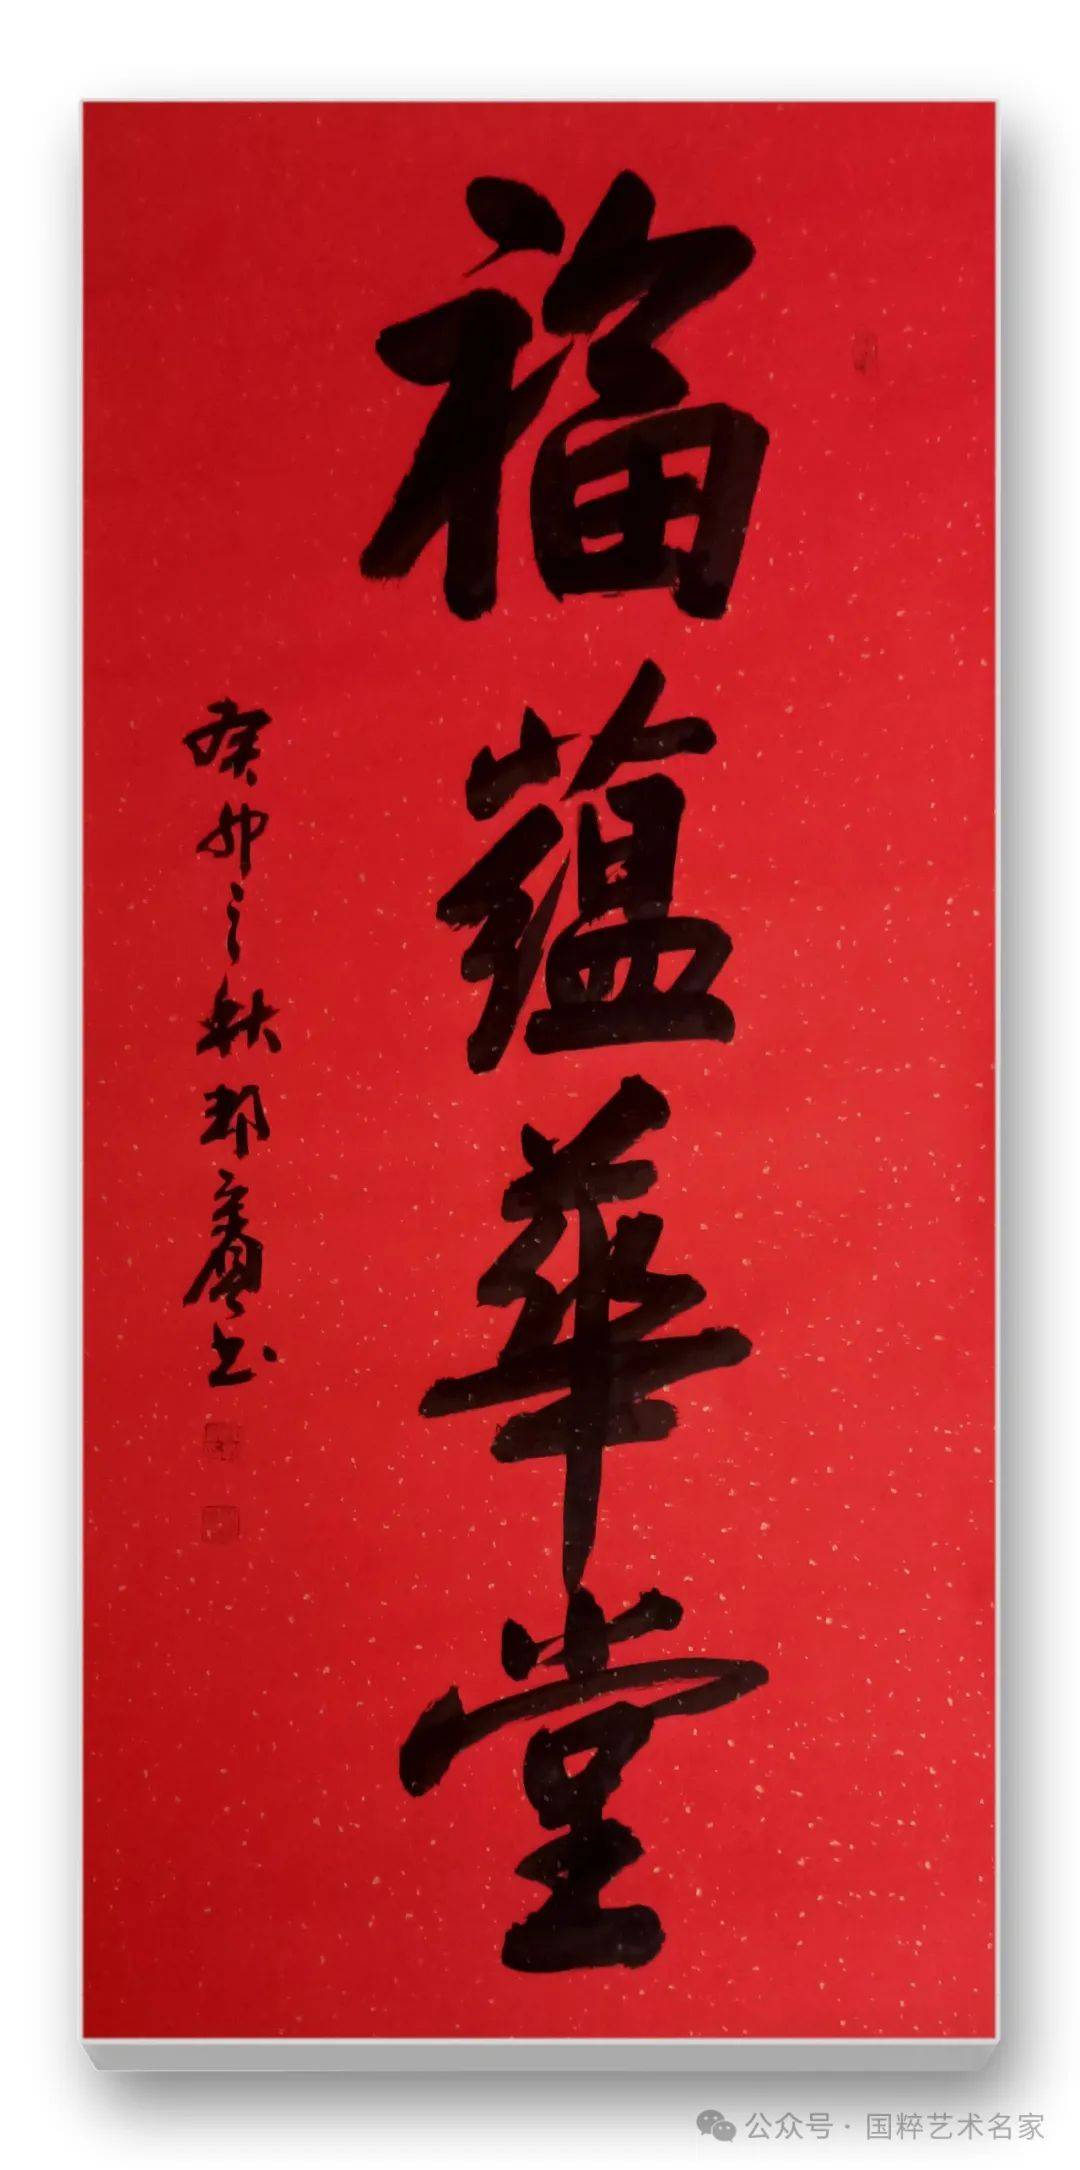 福蕴華堂
癸卯之秋邦廣书
公众号 · 国粹艺术名家